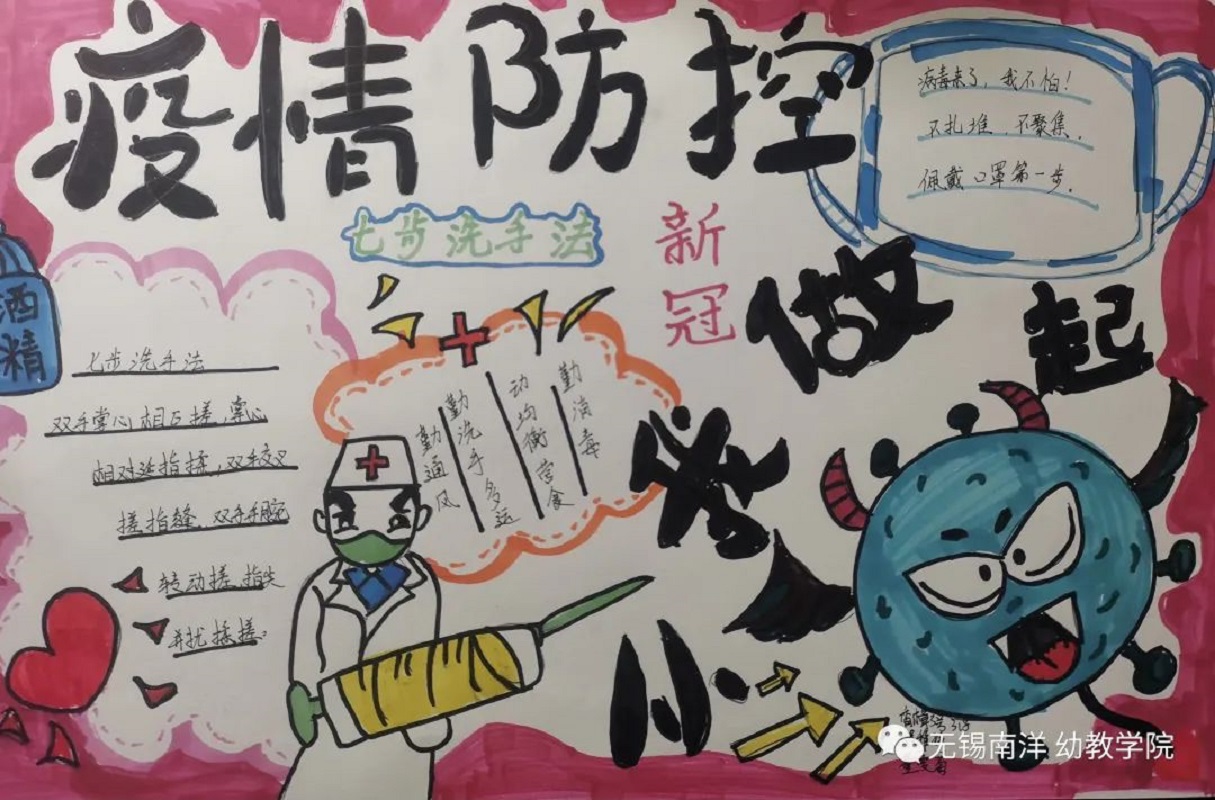 疫情防控
病毒来了，我不怕！
不扎堆，不聚集，
佩戴口罩第一步。
七步洗手法
新冠
做起
小
酒精
七步洗手法
双手掌心相互搓，掌心
相对延指揉，双手交叉
搓指缝，双手手腕
转动搓，指尖
并拢揉搓。
勤通风
勤洗手多运
动均衡营食
勤消毒
无锡南洋 幼教学院